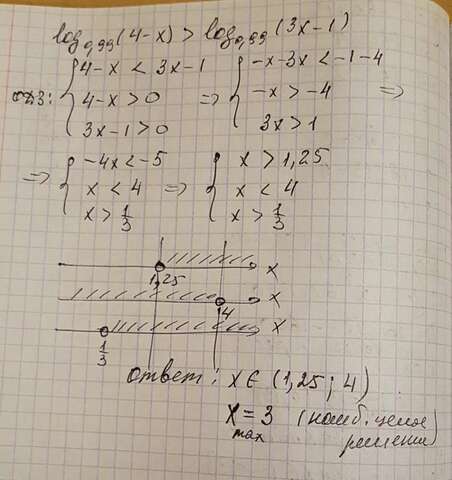 log₀,₉₉(4-x) > log₀,₉₉(3x-1)
ОДЗ: { 4-x < 3x-1 ⇒ { -x-3x < -1-4 ⇒
4-x > 0 -x > -4
3x-1 > 0 3x > 1
⇒ { -4x < -5 ⇒ { x > 1,25
x < 4 x < 4
x > 1/3 x > 1/3
1,25 x
4 x
1/3 x
ответ: x ∈ (1,25; 4)
x max = 3 (наиб. целое
решение)